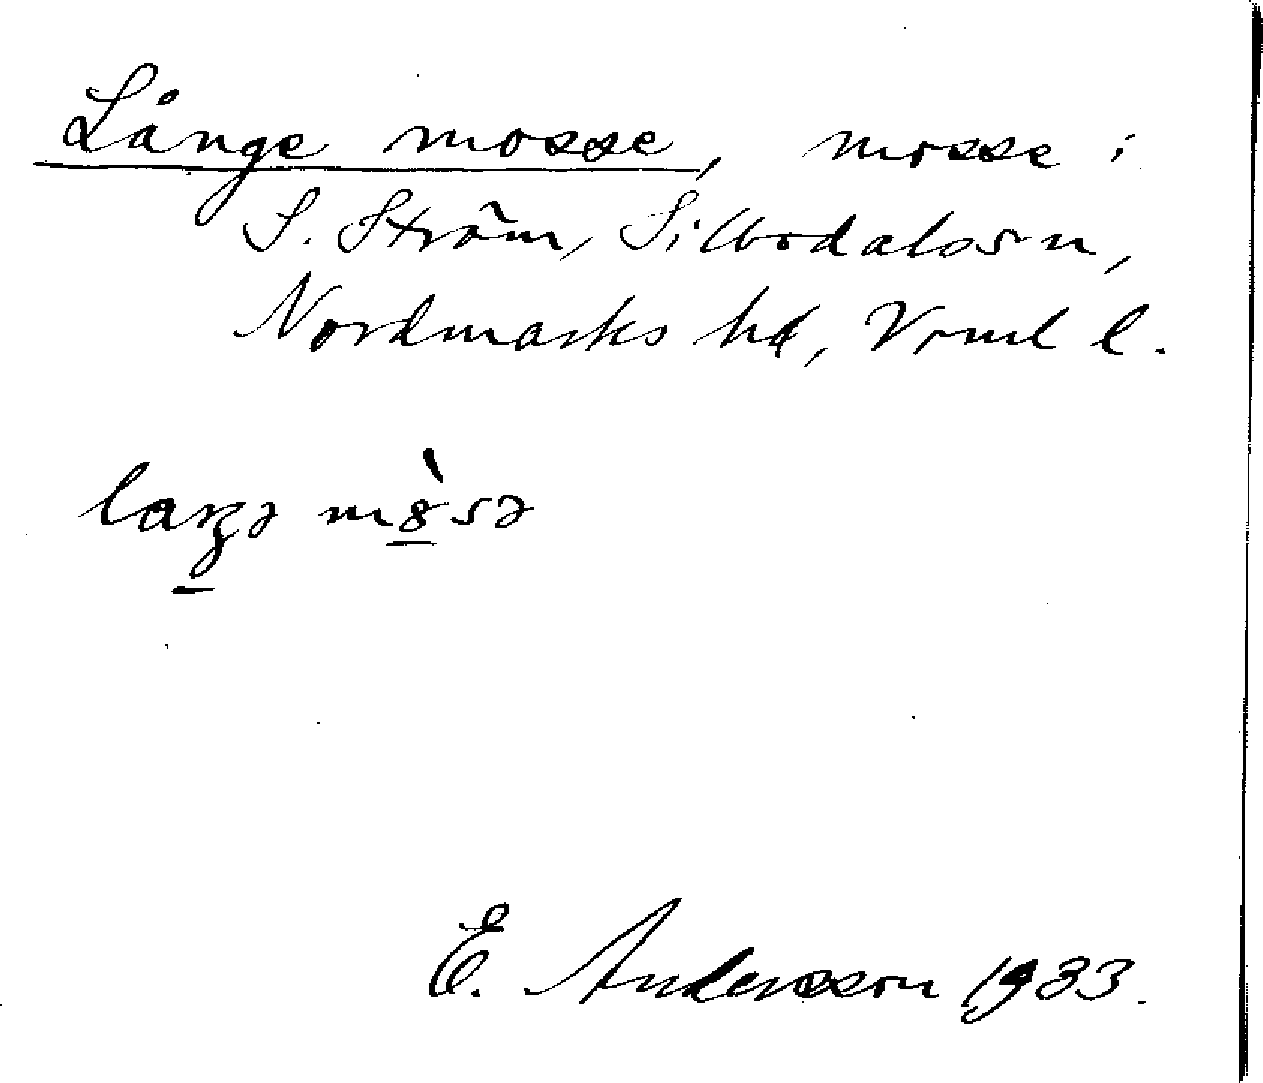 Långe mosse, mosse i
S. Ström, Silbodals sn,
Nordmarks hd, Vrml l.
laŋə m8̀sə
E. Andersson 1933.